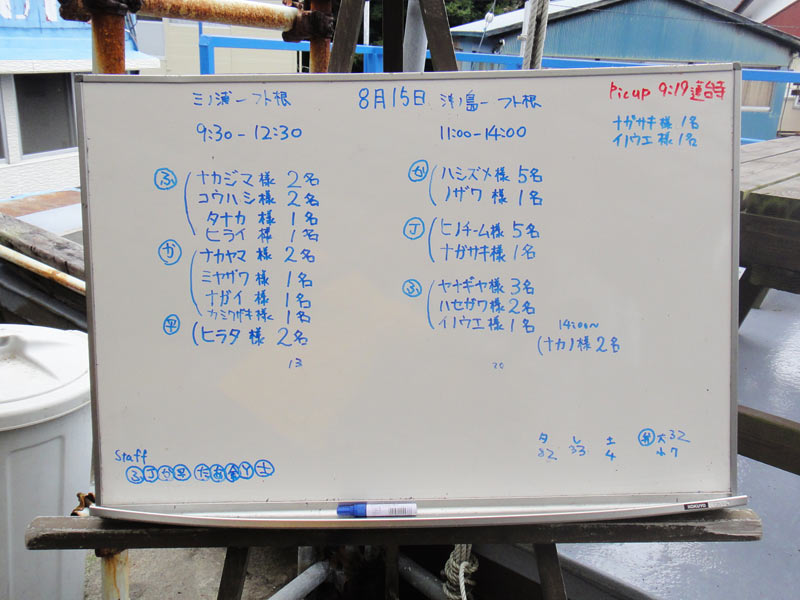 8月15日
ミノ浦ーフト根
9:30-12:30
ふ ナカジマ様 2名
コウハシ様 2名
タナカ様 1名
ヒライ様 1名
か ナカヤマ様 2名
ミヤザワ様 1名
ナガイ様 1名
カミワザキ様 1名
平 ヒラタ様 2名
13
ーフト根
11:00-14:00
か ハシズメ様 5名
ノザワ様 1名
J ヒノチーム様 5名
ナガサキ様 1名
ふ ヤナギヤ様 3名
ハセガワ様 2名
イノウエ様 1名
14:00〜
(ナカノ様 2名
20
Picup 9:19 蓮台寺
ナガサキ様 1名
イノウエ様 1名
Staff
ふ J か 平 た お 金 Y 土
タ し 土
82 33 4
大32
小7
KOKUYO